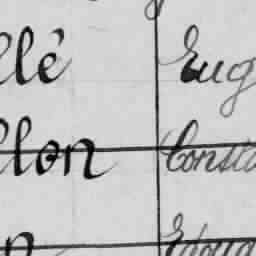 llé Eug
llon Consta
n Edoua